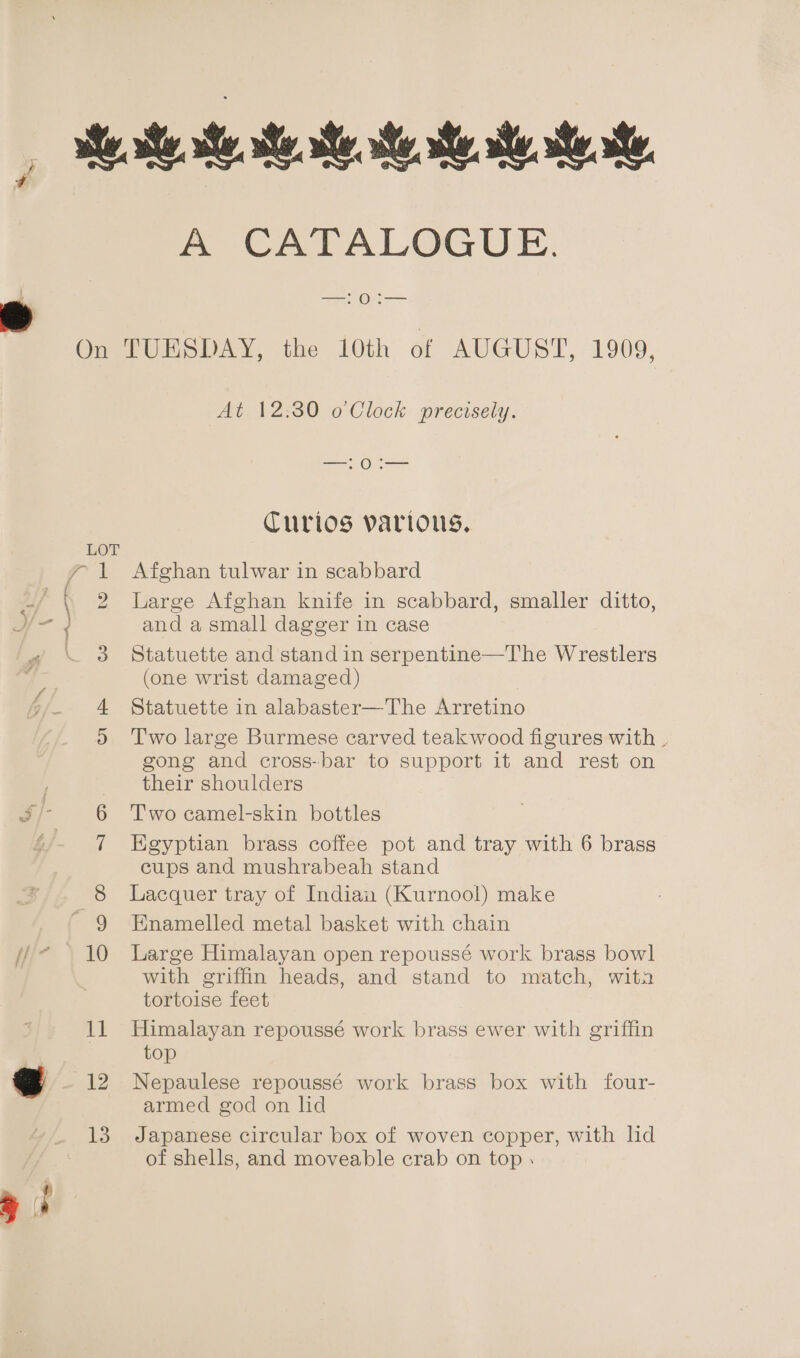 A CATALOGUE.
—: O :—
On TUESDAY, the 10th of AUGUST, 1909,
At 12.30 o'Clock precisely.
—: O :—
Curios various.
LOT
1 Afghan tulwar in scabbard
2 Large Afghan knife in scabbard, smaller ditto,
and a small dagger in case
3 Statuette and stand in serpentine—The Wrestlers
(one wrist damaged)
4 Statuette in alabaster—The Arretino
5 Two large Burmese carved teakwood figures with
gong and cross-bar to support it and rest on
their shoulders
6 Two camel-skin bottles
7 Egyptian brass coffee pot and tray with 6 brass
cups and mushrabeah stand
8 Lacquer tray of Indian (Kurnool) make
9 Enamelled metal basket with chain
10 Large Himalayan open repoussé work brass bowl
with griffin heads, and stand to match, with
tortoise feet
11 Himalayan repoussé work brass ewer with griffin
top
12 Nepaulese repoussé work brass box with four-
armed god on lid
13 Japanese circular box of woven copper, with lid
of shells, and moveable crab on top